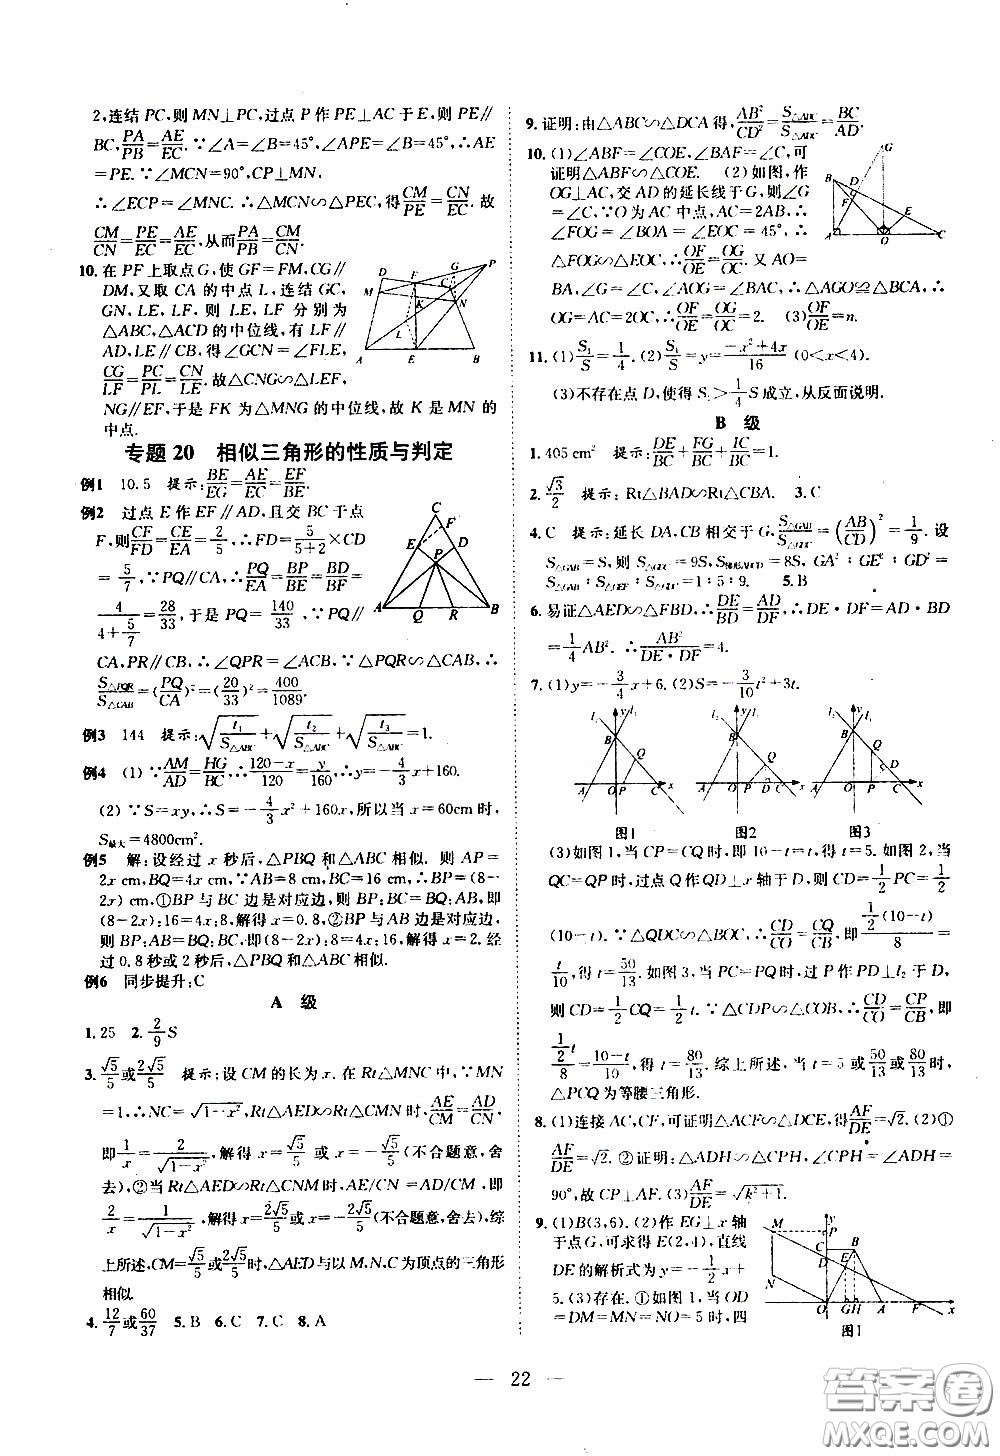 2,连结 PC,则 MN⊥PC,过点 P 作 PE⊥AC 于 E,则 PE∥
BC,PA/PB=AE/EC.∵∠A=∠B=45°,∠APE=45°,∴AE
=PE.∵∠MCN=90°,CP⊥MN,
∴∠ECP=∠MNC.∴△MCN∽△PEC,得CM/PE=CN/EC.故
CM/CN=PE/EC=AE/EC,从而PA/PB=CM/CN.
10. 在 PF 上取点 G,使 GF=FM,CG∥
DM,又取 CA 的中点 L,连结 GC,
GN,LE,LF,则 LF 分别为
△ABC,△ACD 的中位线,有 LF∥
AD,LE∥CB,得∠GCN=∠FLE,
CG/LF=PC/PL=CN/LE.故△CNG∽△LEF,
NG∥EF,于是 FK 为△MNG 的中位线,故 K 是 MN 的
中点.
D F G P
M C
K N
L
A E B
专题 20 相似三角形的性质与判定
例1 10.5 提示:BE/EG=AE/EC=EF/BE.
例2 过点 E 作 EF∥AD,且交 BC 于点
F,则CF/FD=CE/EA=2/5,∴FD=5/(5+2)×CD
=5/7,∵PQ∥CA,∴PQ/EA=BP/BE=BD/BF=
4/(4+5/7)=28/33,于是 PQ=140/33.∵PQ∥
CA,PR∥CB,∴∠QPR=∠ACB,∵△PQR∽△CAB,∴
S△PQR/S△CAB=(PQ/CA)²=(20/33)²=400/1089.
C
F
E D
P
A Q R B
例3 144 提示:√(t₁/S△ABC)+√(t₂/S△ABC)+√(t₃/S△ABC)=1.
例4 (1)∵AM/AD=HG/BC,∴(120-x)/120=y/160,∴y=-4/3x+160.
(2)∵S=xy,∴S=-4/3x²+160x,所以当 x=60cm时,
S最大=4800cm².
例5 解:设经过 x 秒后,△PBQ 和△ABC 相似. 则 AP=
2x cm,BQ=4x cm,∵AB=8 cm,BC=16 cm,∴BP=(8-
2x)cm,①BP 与 BC 边是对应边,则 BP:BC=BQ:AB,即
(8-2x):16=4x:8,解得 x=0.8,②BP 与 AB 边是对应边,
则 BP:AB=BQ:BC,即(8-2x):8=4x:16,解得 x=2. 经
过 0.8 秒或 2 秒后,△PBQ 和△ABC 相似.
例6 同步提升:C
A 级
1. 25 2. 2/9 S
3. √5/5或2√5/5 提示:设 CM 的长为 x. 在 Rt△MNC 中,∵MN
=1,∴NC=√(1-x²),Rt△AED∽Rt△CMN 时,AE/CM=AD/CN,
即1/x=2/√(1-x²),解得 x=√5/5或 x=-√5/5(不合题意,舍
去),②当 Rt△AED∽Rt△CNM 时,AE/CN=AD/CM,即
2/x=1/√(1-x²),解得 x=2√5/5或-2√5/5(不合题意,舍去),综
上所述,CM=√5/5或2√5/5时,△AED 与以 M、N、C 为顶点的三角形
相似.
4. 12/7或60/37 5. B 6. C 7. C 8. A
9. 证明:由△ABC∽△DCA 得,AB²/CD²=S△ABC/S△ADC=BC/AD.
10. (1)∠ABF=∠COE,∠BAF=∠C,可
证明△ABF∽△COE. (2)如图,作
OG⊥AC,交 AD 的延长线于 G,则∠G
=∠C,∵O 为 AC 中点,AC=2AB,∴
∠FOG=∠BOA=∠EOC=45°,∴
△FOG∽△EOC,∴OF/OE=OG/OC. 又 AO=
BA,∠G=∠C,∠AOG=∠BAC,∴△AGO≌△BCA,∴
OG=AC=2OC,∴OF/OE=OG/OC=2. (3)OF/OE=n.
G
B D
F E
A O C
11. (1)S₁/S=1/4. (2)S₁/S=y=(-x²+4x)/16 (0<x<4).
(3)不存在点 D,使得 S₁>1/4S 成立,从反面说明.
B 级
1. 405 cm² 提示:DE/BC+FG/BC+IC/BC=1.
2. √3/2 提示:Rt△BAD∽Rt△CBA. 3. C
4. C 提示:延长 DA,CB 相交于 G,S△GAB/S△GDC=(AB/CD)²=1/9. 设
S△GAB=S,则 S△GDC=9S,S梯形ABCD=8S,GA²:GE²:GD²=
S△GAB:S△GEF:S△GDC=1:5:9. 5. B
6. 易证△AED∽△FBD,∴DE/BD=AD/DF,∴DE·DF=AD·BD
=1/4AB².∴AB²/(DE·DF)=4.
7. (1)y=-3/4x+6. (2)S=-3/10t²+3t.
l₂ y l₁ B Q A O P C x
l₂ y l₁ B Q A O P D C x
l₂ y l₁ B Q D A O P C x
图1 图2 图3
(3)如图 1,当 CP=CQ 时,即 10-t=t,得 t=5. 如图 2,当
QC=QP 时,过点 Q 作 QD⊥x 轴于 D,则 CD=1/2PC=1/2
(10-t).∵△QDC∽△BOC,∴CD/CO=CQ/CB,即(1/2(10-t))/8=
t/10,得 t=50/13. 如图 3,当 PC=PQ 时,过 P 作 PD⊥l₂ 于 D,
则 CD=1/2CQ=1/2t.∵△CDP∽△COB,∴CD/CO=CP/CB,即
(1/2t)/8=(10-t)/10,得 t=80/13. 综上所述,当 t=5 或50/13或80/13时,
△PCQ 为等腰三角形.
8. (1)连接 AC,CF,可证明△ACF∽△DCE,得AF/DE=√2. (2)①
AF/DE=√2. ②证明:△ADH∽△CPH,∠CPH=∠ADH=
90°,故 CP⊥AF. (3)AF/DE=√(k²+1).
9. (1)B(3,6). (2)作 EG⊥x 轴
于点 G,可求得 E(2,4),直线
DE 的解析式为 y=-1/2x+
5. (3)存在.①如图 1,当 OD
=DM=MN=NO=5 时,四
y
M P
C B
D E
N
O G H A F x
图1
22
答案圈
MXQE.COM